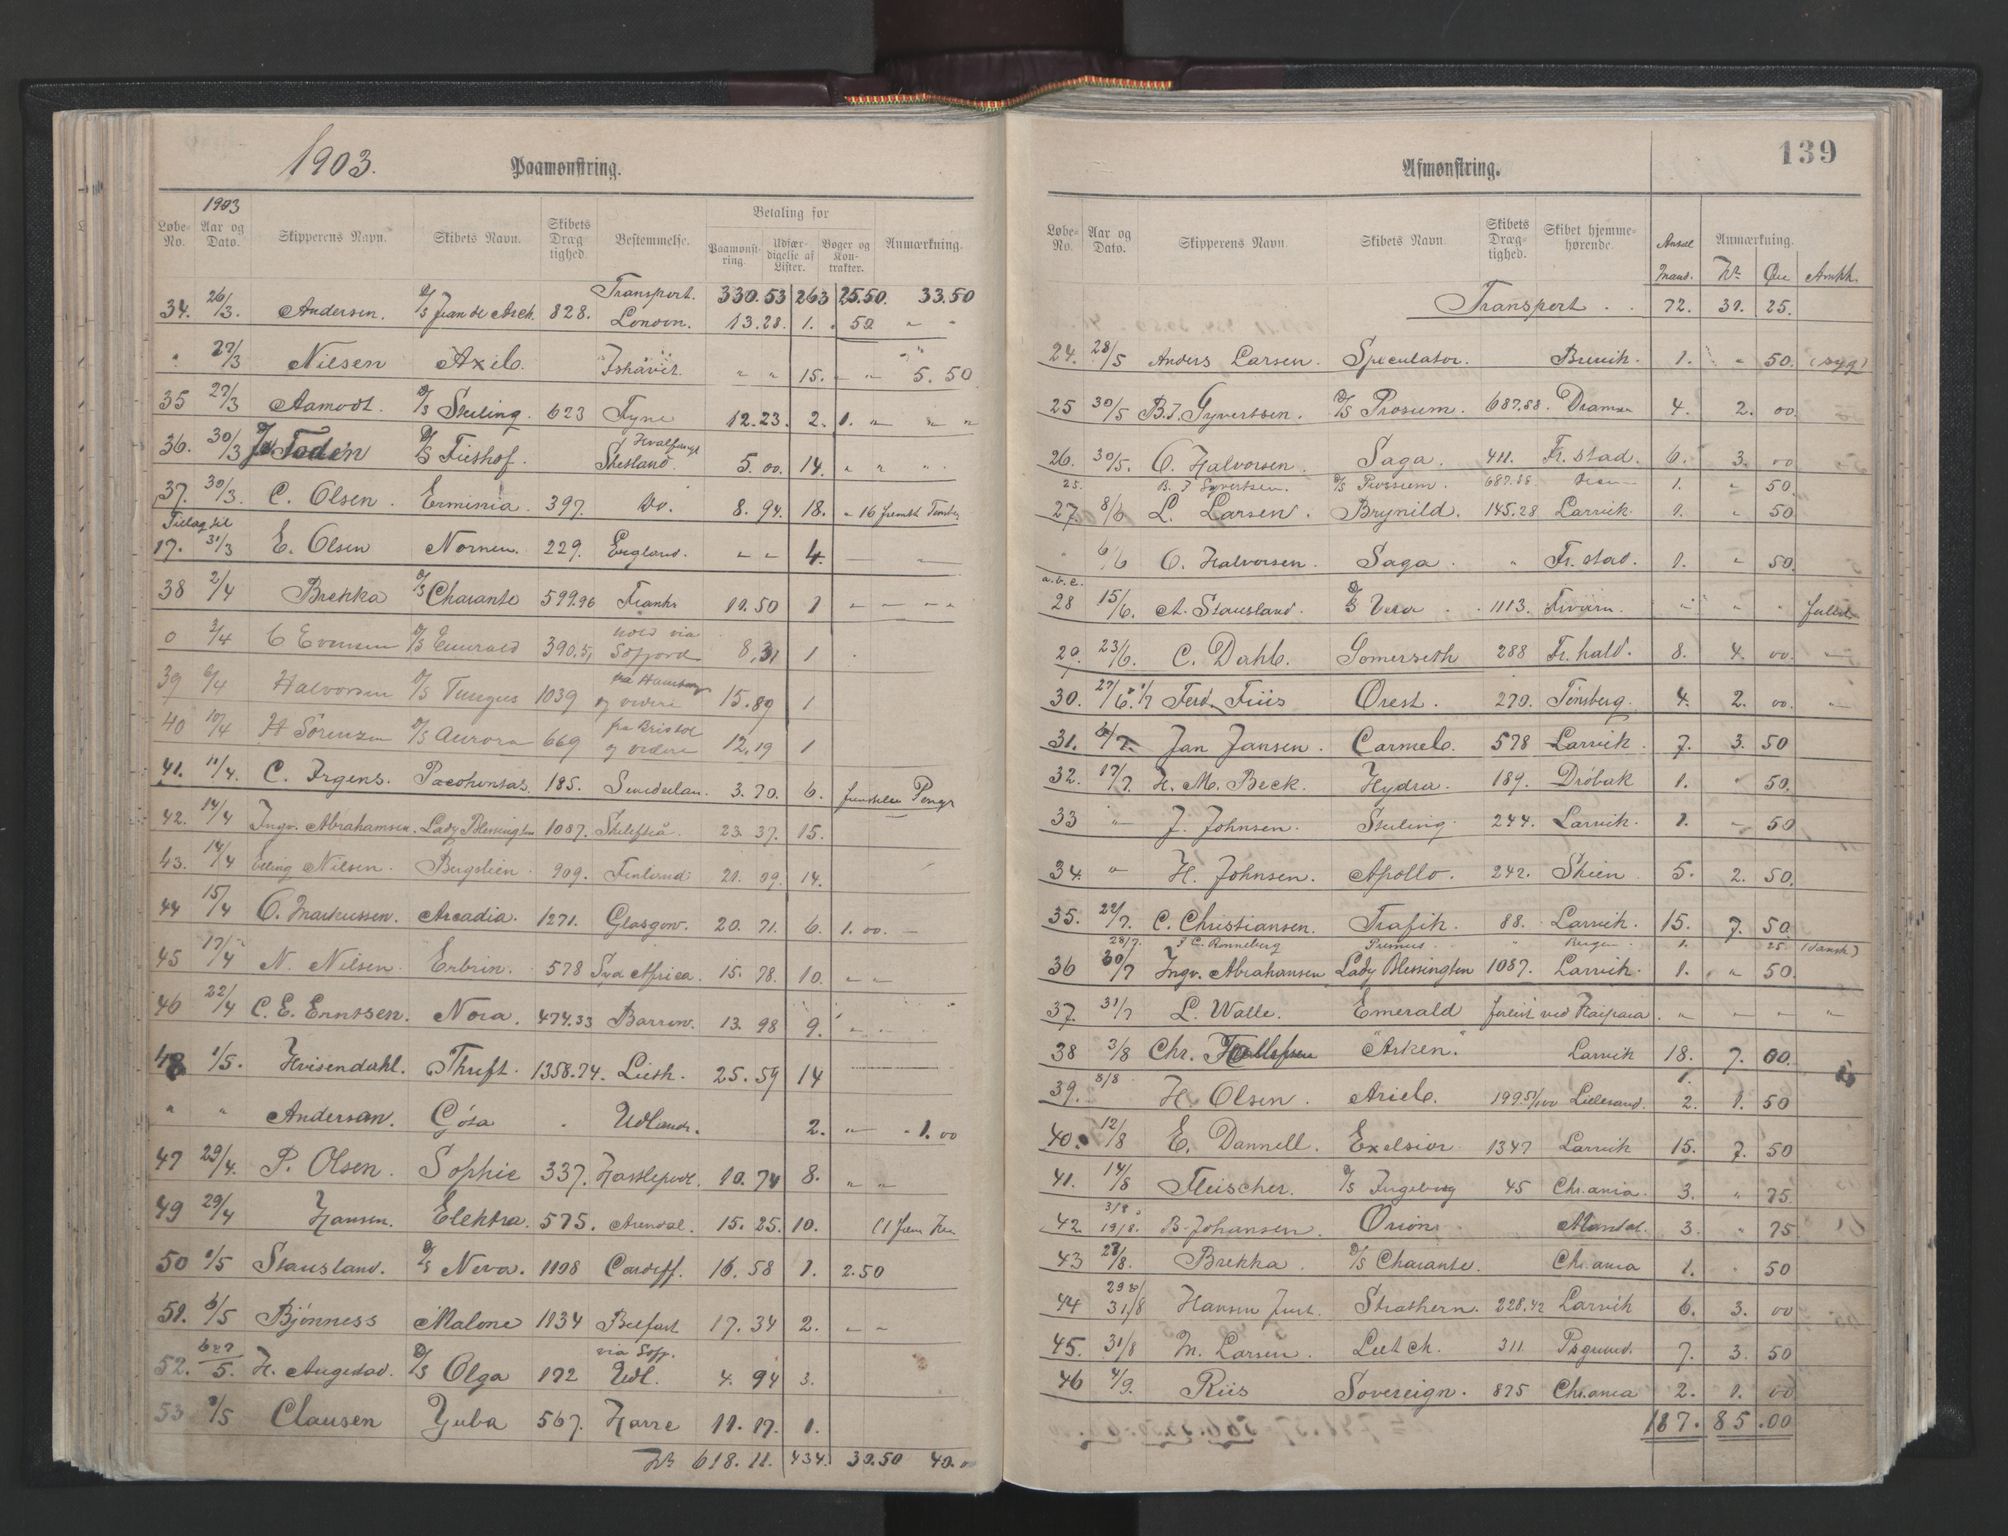 1903. Paamønstring.
1903
Løbe-No. Aar og Dato. Skipperens Navn. Skibets Navn. Skibets Dræg-tighed. Bestemmelse. Betaling for Paamønst-ring. Udfær-digelse af Lister. Bøger og Kon-trakter. Anmærkning.
Transport. 330.53 263 25.50. 33.50
34. 26/3. Andersen. D/S Jean de Arch. 828. London. 13.28. 1. " 50 " "
" 27/3 Nilsen Axel. Ishavet. " " 15. " " 5.50
35 27/3 Aamodt. D/S Sterling. 623 Tyne 12.23. 2. 1. " " "
36. 30/3 D/S Fieshof. Hvalfangst
5.00. 14. " " " "
37. 30/3. C. Olsen. Erminia. 397. Do. 8.94. 18. "
Tillæg til
17. 31/3 E. Olsen Nornen. 229. England. " " 4. " "
38 2/4 Brekka D/S Charante 599.96 Frankr 10.50 1 " " " "
0 3/4 C Evensen D/S Emerald 390.51 via
8,31 1
39 6/4 Halvorsen D/S Tungus 1039 fra Hamburg
og videre 15.89 1
40 10/4 H Sörensen D/S Aurora 669 fra Bristol
og videre 12.19 1
41. 11/4. C. Irgens. Pocohontas. 185. Sunderlan. 3.70. 6. Penge
42. 14/4 Ingv. Abrahamsen. Lady Blessington 1087. Skelefteå. 23 37. 15.
43. 14/4 Elling Nilsen. Bergslien 909. Finland 21.09. 14.
44 15/4 O. Markussen. Arcadia. 1271. Glasgow. 20.71. 6. 1.00. "
45 17/4 N. Nilsen. Erbrin. 578 Syd Africa. 15.78. 10. " "
46 22/4 C. E. Erntsen. Nora. 474.33 Barrow. 13.98 9. " "
48 1/5. Hvisendahl. Thrift. 1358.74. Lieth. 25.59 14
" " Andersen. Gösa . Udlandr. 2. " " 1.00
47 29/4. P. Olsen. Sophie 337. Hartlepool. 10.74 8. " "
49 29/4 Hansen. Elektra. 575. Arendal. 15.25. 10.
50 1/5 Stausland. D/S Neva. 1108 Cardiff. 16.58 1. 2.50
51. 6/5 Bjönness Malone 1134 Belfast 17.34 2. " "
52. 6&7/5. H. Augestad. D/S Olga 172 via
Udl. 4.94 3.
53 9/5 Clausen Yuba 567. Havre 11.17. 1.
Kr 618.11. 434. 30.50 40.00
139
Afmønstring.
Løbe-No. Aar og Dato. Skipperens Navn. Skibets Navn. Skibets Dræg-tighed. Skibet hjemme-hørende. Antal Mand. Anmærkning. Kr. Øre Anmkh.
Transport . . 72. 31. 25.
24. 28/5 Anders Larsen. Speculator. Brevik. 1. " 50. (syg)
25 30/5 B. J. Syvertsen. D/S Prosum. 687.88. Dramen 4. 2. 00.
26. 30/5. O. Halvorsen. Saga. 411. Fr. stad. 6. 3. 00
25. B. J. Syvertsen. D/S Prossum. 687.88 1. " 50.
27. 8/6 L. Larsen. Brynild. 145.28 Larvik. 1. " 50
" 6/6 O. Halvorsen Saga. " Fr. stad. 1. " 50.
a.b.c.
28 15/6. A. Stausland. D/S Vera . . 1113. Tvärn. " " "
29. 23/6. C. Dahl. Somerseth 288 Fr. hald. 8. 4. 00 "
30. 27/6. & 1/7 Ferd. Friis Orest. 270. Tönsberg. 4. 2. 00. "
31. 6/7. Jan Jansen. Carmel. 578 Larvik. 7. 3. 50
32. 17/7. H. M. Beck. Hydra. 189. Dröbak 1. " 50.
33 " J. Johnsen. Sterling. 244. Larvik. 1. " 50
34. " H. Johnsen. Apollo. 242. Skien 5. 2. 50.
35. 22/7. C. Christiansen. Trafik. 88. Larvik. 15. 7. 50.
28/7. F C. Rønneberg Primus. " Bergen 1. 25. (dansk)
36 30/7 Ingv. Abrahamsen Lady Blessington 1087. Larvik. 1. " 50.
37. 31/7 L. Walle. Emerald forlist ved Kaipara. " " " "
38 3/8 Chr. "Arken." Larvik 18. 7. 00.
39. 8/8 H. Olsen. Ariel. 199.51/100 Lillesand. 1.
2. 1. 50
40. 12/8 E. Dannell. Exelsior. 1347 Larvik 15. 7. 50
41. 14/8 Fleischer. D/S Ingeborg 45 Chr.ania. 3. " 75.
42. 3/8 &
19/8. B. Johansen. Orion. Mandal. 3. " 75
43 27/8. Brekka. D/S Charante. Chr.ania 1. . 50
44 29 &
31/8 Hansen Strathern. 228.42 Larvik 6. 3. 00
45. 31/8 M. Larsen. Leetch. 311 Psgrund. 7. 3. 50
46 4/9. Riis Sovereign. 875 Chr.ania 2. 1. 00
187. 85.00